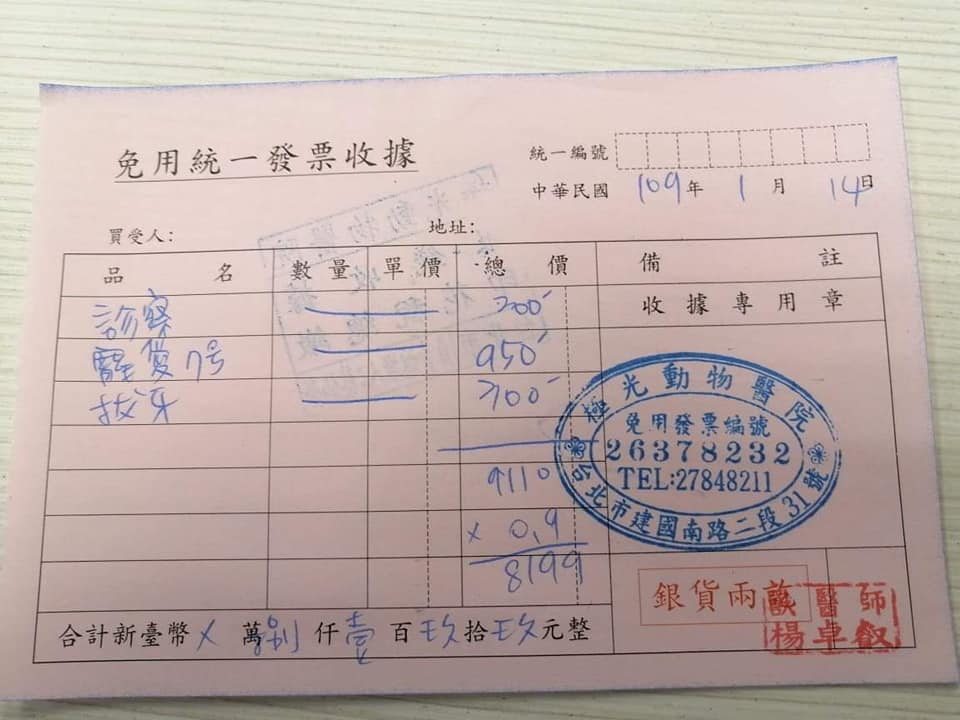 免用統一發票收據
統一編號
中華民國 109年 1月 14日
買受人: 地址:
品名 數量 單價 總價 備註
收據專用章
診察 200
寵愛7号 950
拔牙
9110
× 0.9
8199
合計新臺幣 × 萬捌仟壹百玖拾玖元整
極光動物醫院
免用發票編號
26378232
TEL:27848211
台北市建國南路二段31號
銀貨兩訖
獸醫師
楊卓叡